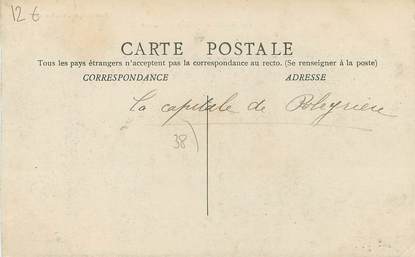 12 €
CARTE POSTALE
Tous les pays étrangers n'acceptent pas la correspondance au recto. (Se renseigner à la poste)
CORRESPONDANCE ADRESSE
La capitale de Poleyrieu
38)